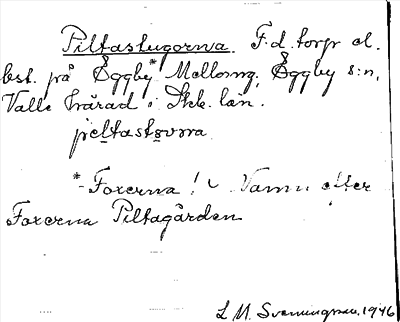 Piltastugorna. F.d. torp el.
bst. på Eggby* Mellomg. Eggby s:n,
Valle härad i Skb. län.
piltastovora
*-Foxerna! Namn efter
Foxerna Piltagården
L M. Svenungsson, 1946